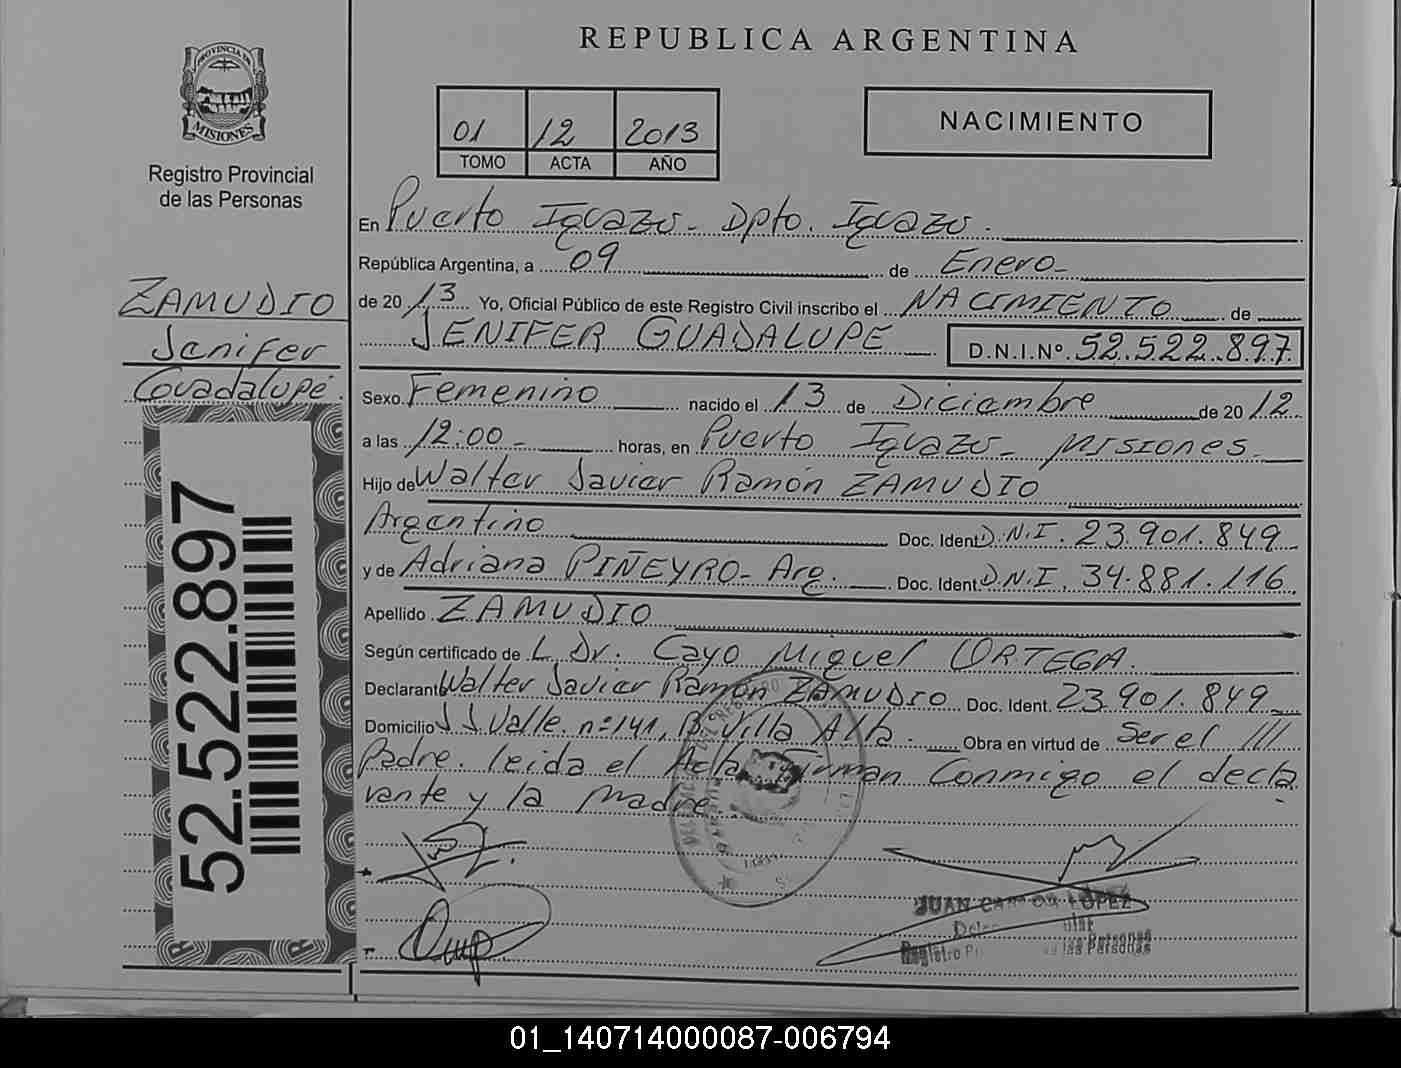 REPUBLICA ARGENTINA
PROVINCIA DE
MISIONES
Registro Provincial
de las Personas
01 12 2013
TOMO ACTA AÑO
NACIMIENTO
ZAMUDIO
Jenifer
Guadalupe.
52.522.897
En Puerto Iguazú - Dpto. Iguazú.
República Argentina, a 09 de Enero -
de 20 13 Yo, Oficial Público de este Registro Civil inscribo el NACIMIENTO de
JENIFER GUADALUPE D.N.I.Nº. 52.522.897
Sexo. Femenino nacido el 13 de Diciembre de 20 12
a las 12:00 - horas, en Puerto Iguazú - Misiones -
Hijo de Walter Javier Ramón ZAMUDIO
Argentino Doc. Ident. D.N.I. 23.901.849
y de Adriana PIÑEYRO - Arg. Doc. Ident. D.N.I. 34.881.116.
Apellido ZAMUDIO
Según certificado de L Dr. Cayo Miguel ORTEGA.
Declarante Walter Javier Ramón ZAMUDIO Doc. Ident. 23.901.849
Domicilio J J Valle. nº 141, Bº Villa Alta. Obra en virtud de Ser el ///
Padre. leida el Acta Firman Conmigo el decla
rante y la Madre
JUAN CARLOS LOPEZ
Registro Provincial de las Personas
01_140714000087-006794